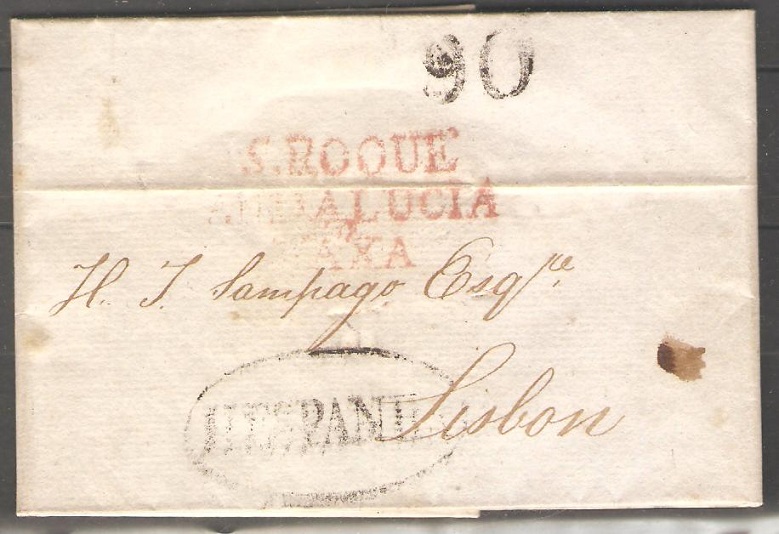 90
S. ROQUE
ANDALUCIA
BAXA
H. J. Sampayo Esqre
Lisbon